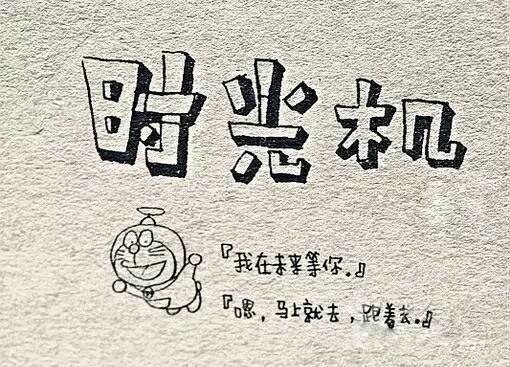 时光机
『我在未来等你.』
『嗯，马上就去，跟着去.』